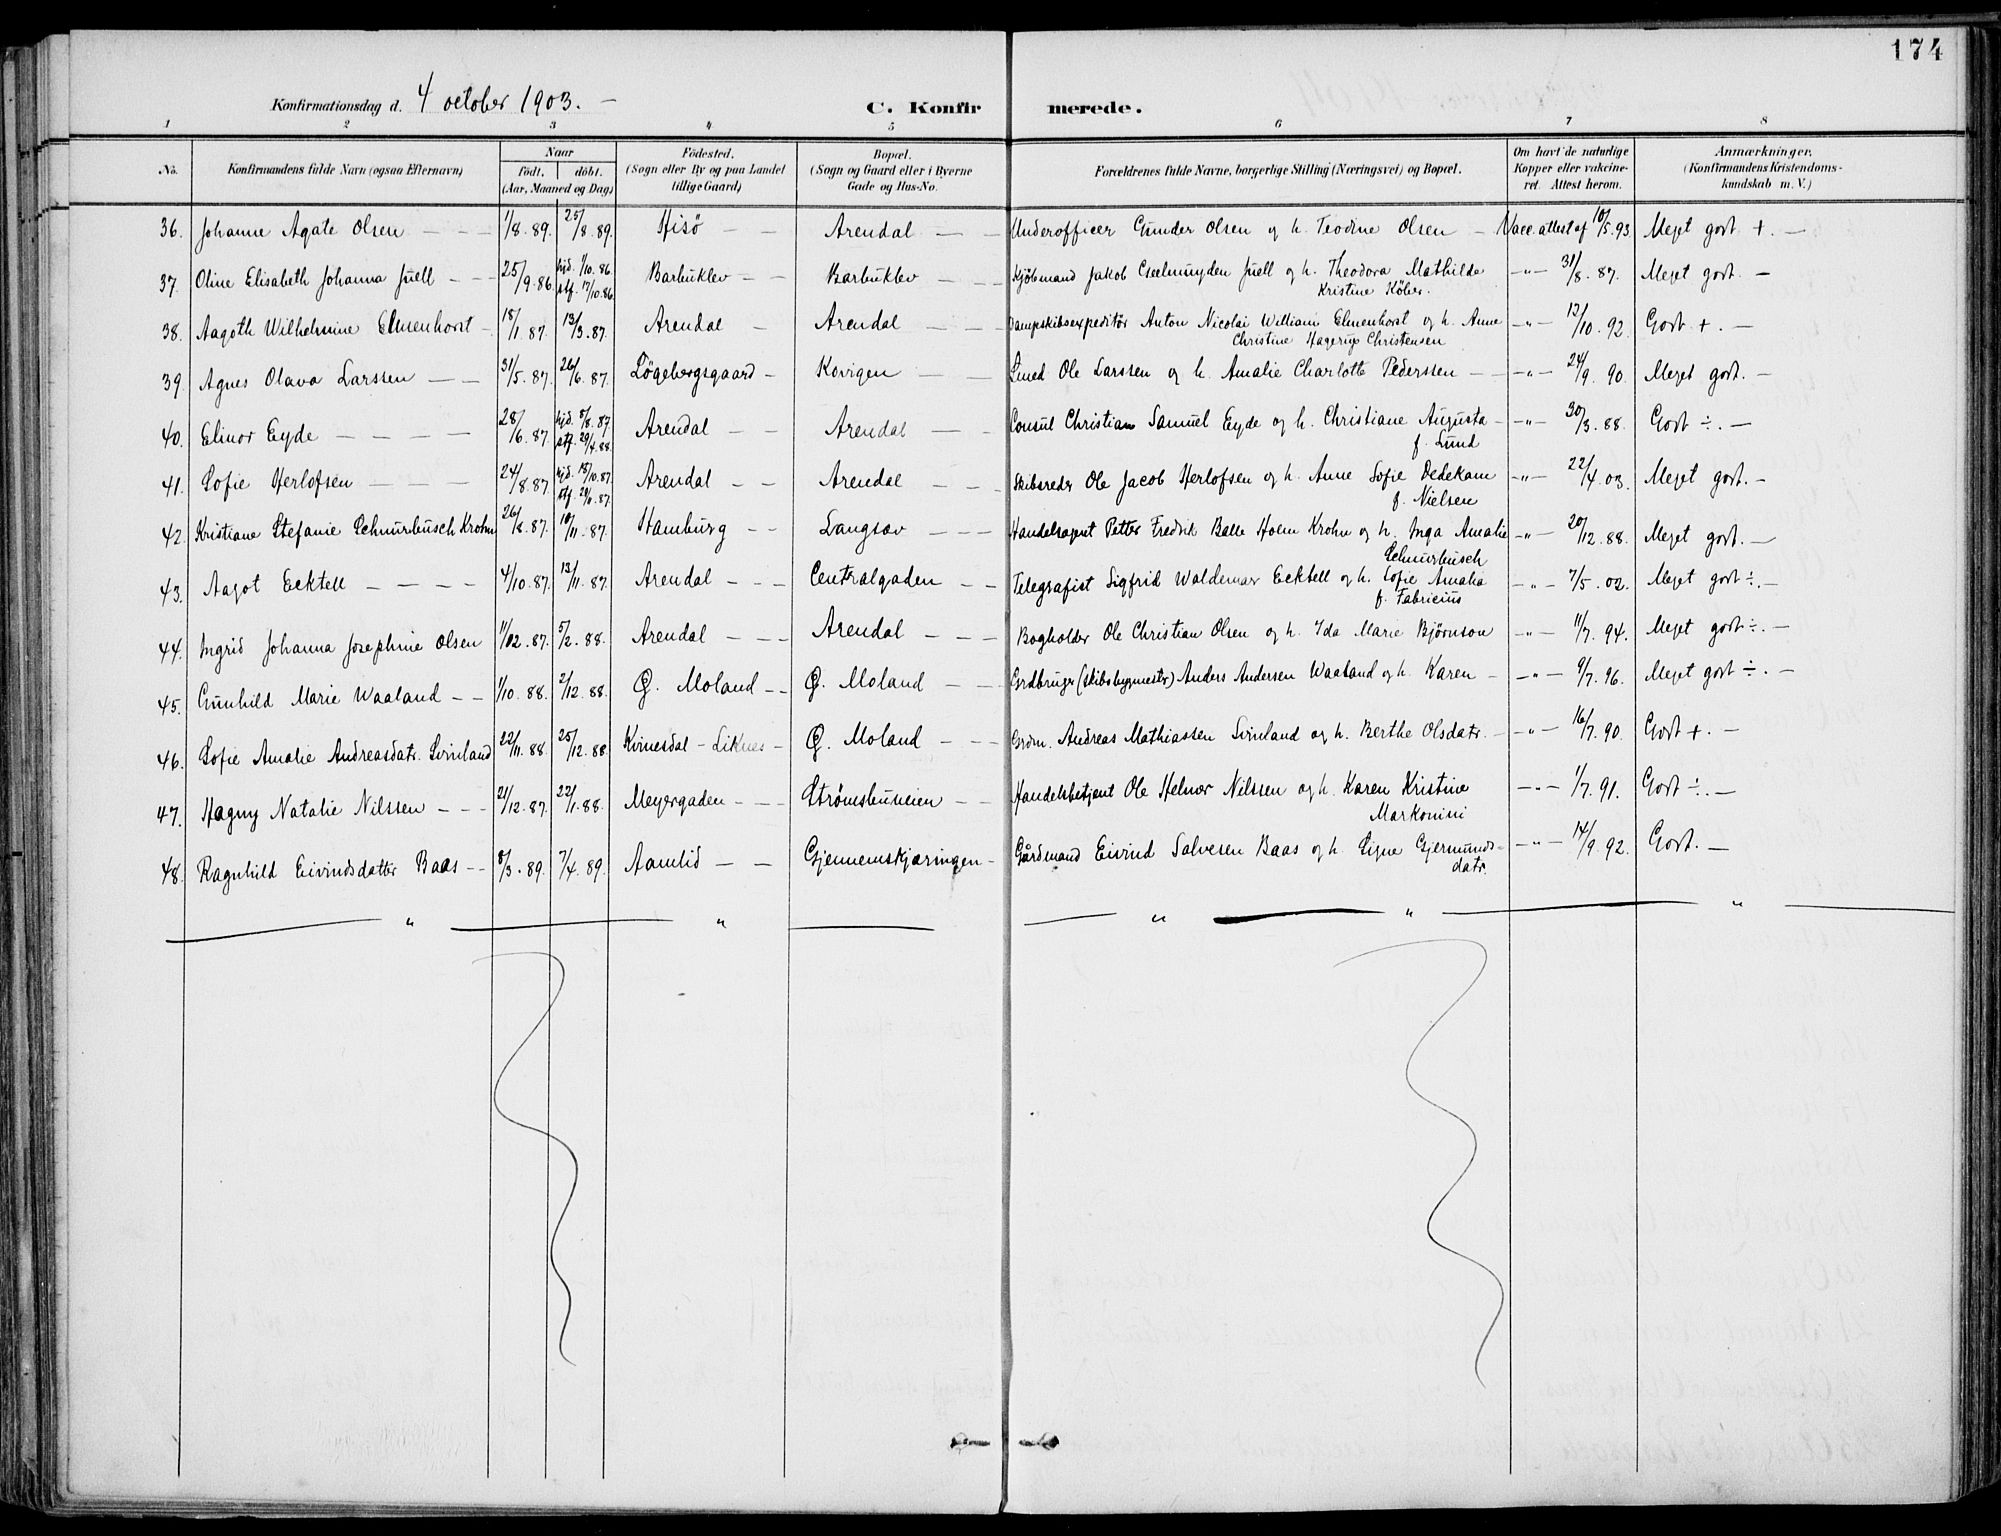 174
Konfirmationsdag d. 4 october 1903. —
C. Konfirmerede.
1 2 3 4 5 6 7 8
No. Konfirmandens fulde Navn (ogsaa Efternavn) Naar født. døbt. (Aar, Maaned og Dag) Fødested. (Sogn eller By og paa Landet tillige Gaard) Bopæl. (Sogn og Gaard eller i Byerne Gade og Hus-No. Forældrenes fulde Navne, borgerlige Stilling (Næringsvei) og Bopæl. Om havt de naturlige Kopper eller vakcineret. Attest herom. Anmærkninger. (Konfirmandens Kristendomskundskab m. V.)
36. Johanne Agate Olsen — 1/8.89. 25/8.89. Hisö — Arendal — Underofficer Gunder Olsen og h. Teodine Olsen — Vacc. attest af 10/5.93. Meget godt +. —
37. Oline Elisabeth Johanna Juell — 25/9.86. hjd. 1/10.86. stf. 17/10.86. Barbuklev — Barbuklev — Kjöbmand Jakob Juell og h. Theodora Mathilde
Kristine Köber. -"- 31/8.87. Meget godt. —
38. Aagoth Wilhelmine Elmenhorst 18/1.87. 13/3.87. Arendal — Arendal — Dampskibsexpeditör Anton Nicolai William Elmenhorst og h. Anne
Christine Hagerup Christensen -"- 13/10.92. Godt +. —
39. Agnes Olava Larssen — 31/5.87. 26/6.87. Lögebergsgaard — Kovigen — Smed Ole Larssen og h. Amalie Charlotte Pederssen — -"- 24/9.90. Meget godt. —
40. Elinor Eyde — 28/6.87. hjd. 8/8.87. stf. 29/4.88. Arendal — Arendal — Consul Christian Samuel Eyde og h. Christiane Augusta
f. Lund -"- 30/3.88. Godt ÷. —
41. Sofie Herlofsen — 24/8.87. hjd. 18/10.87. stf. Arendal — Arendal — Skibsreder Ole Jacob Herlofsen og h. Anne Sofie Dedekam
f. Nielsen -"- 22/4.03. Meget godt. —
42. Kristiane Stefanie Schnurbusch Krohn 26/8.87. 10/11.87. Hamburg — Langsav — Handelsagent Petter Fredrik Balle Holm Krohn og h. Inga Amalie
Schnurbusch -"- 20/12.88. Meget godt. —
43. Aagot Ecktell — 4/10.87. 13/11.87. Arendal — Centralgaden — Telegrafist Sigfrid Waldemar Ecktell og h. Sofie Amalia
f. Fabricius -"- 7/5.02. Meget godt ÷. —
44. Ingrid Johanna Josephine Olsen 11/12.87. 5/2.88. Arendal — Arendal — Bogholder Ole Christian Olsen og h. Ida Marie Bjørnson -"- 11/7.94. Meget godt ÷. —
45. Gunhild Marie Waaland — 1/10.88. 2/12.88. Ø. Moland — Ø. Moland — Grdbruger (skibsbygmester) Anders Andersen Waaland og h. Karen — -"- 9/7.96. Meget godt ÷. —
46. Sofie Amalie Andreasdatr. Svinland 22/11.88. 25/12.88. Kvinesdal - Liknes — Ø. Moland — Grdm. Andreas Mathiassen Svinland og h. Berthe Olsdatr. — -"- 16/7.90. Godt +. —
47. Hagny Natalie Nilssen — 21/12.87. 22/1.88. Meyergaden — Strömsbuveien — Handelsbetjent Ole Helmer Nilssen og h. Karen Kristine
Markonini -"- 1/7.91. Godt ÷. —
48. Ragnhild Eivindsdatter Baas — 8/3.89. 7/4.89. Aamlid — Gjennemskjæringen — Gårdmand Eivind Salvesen Baas og h. Signe Gjermunds-
datr. -"- 14/9.92. Godt. —